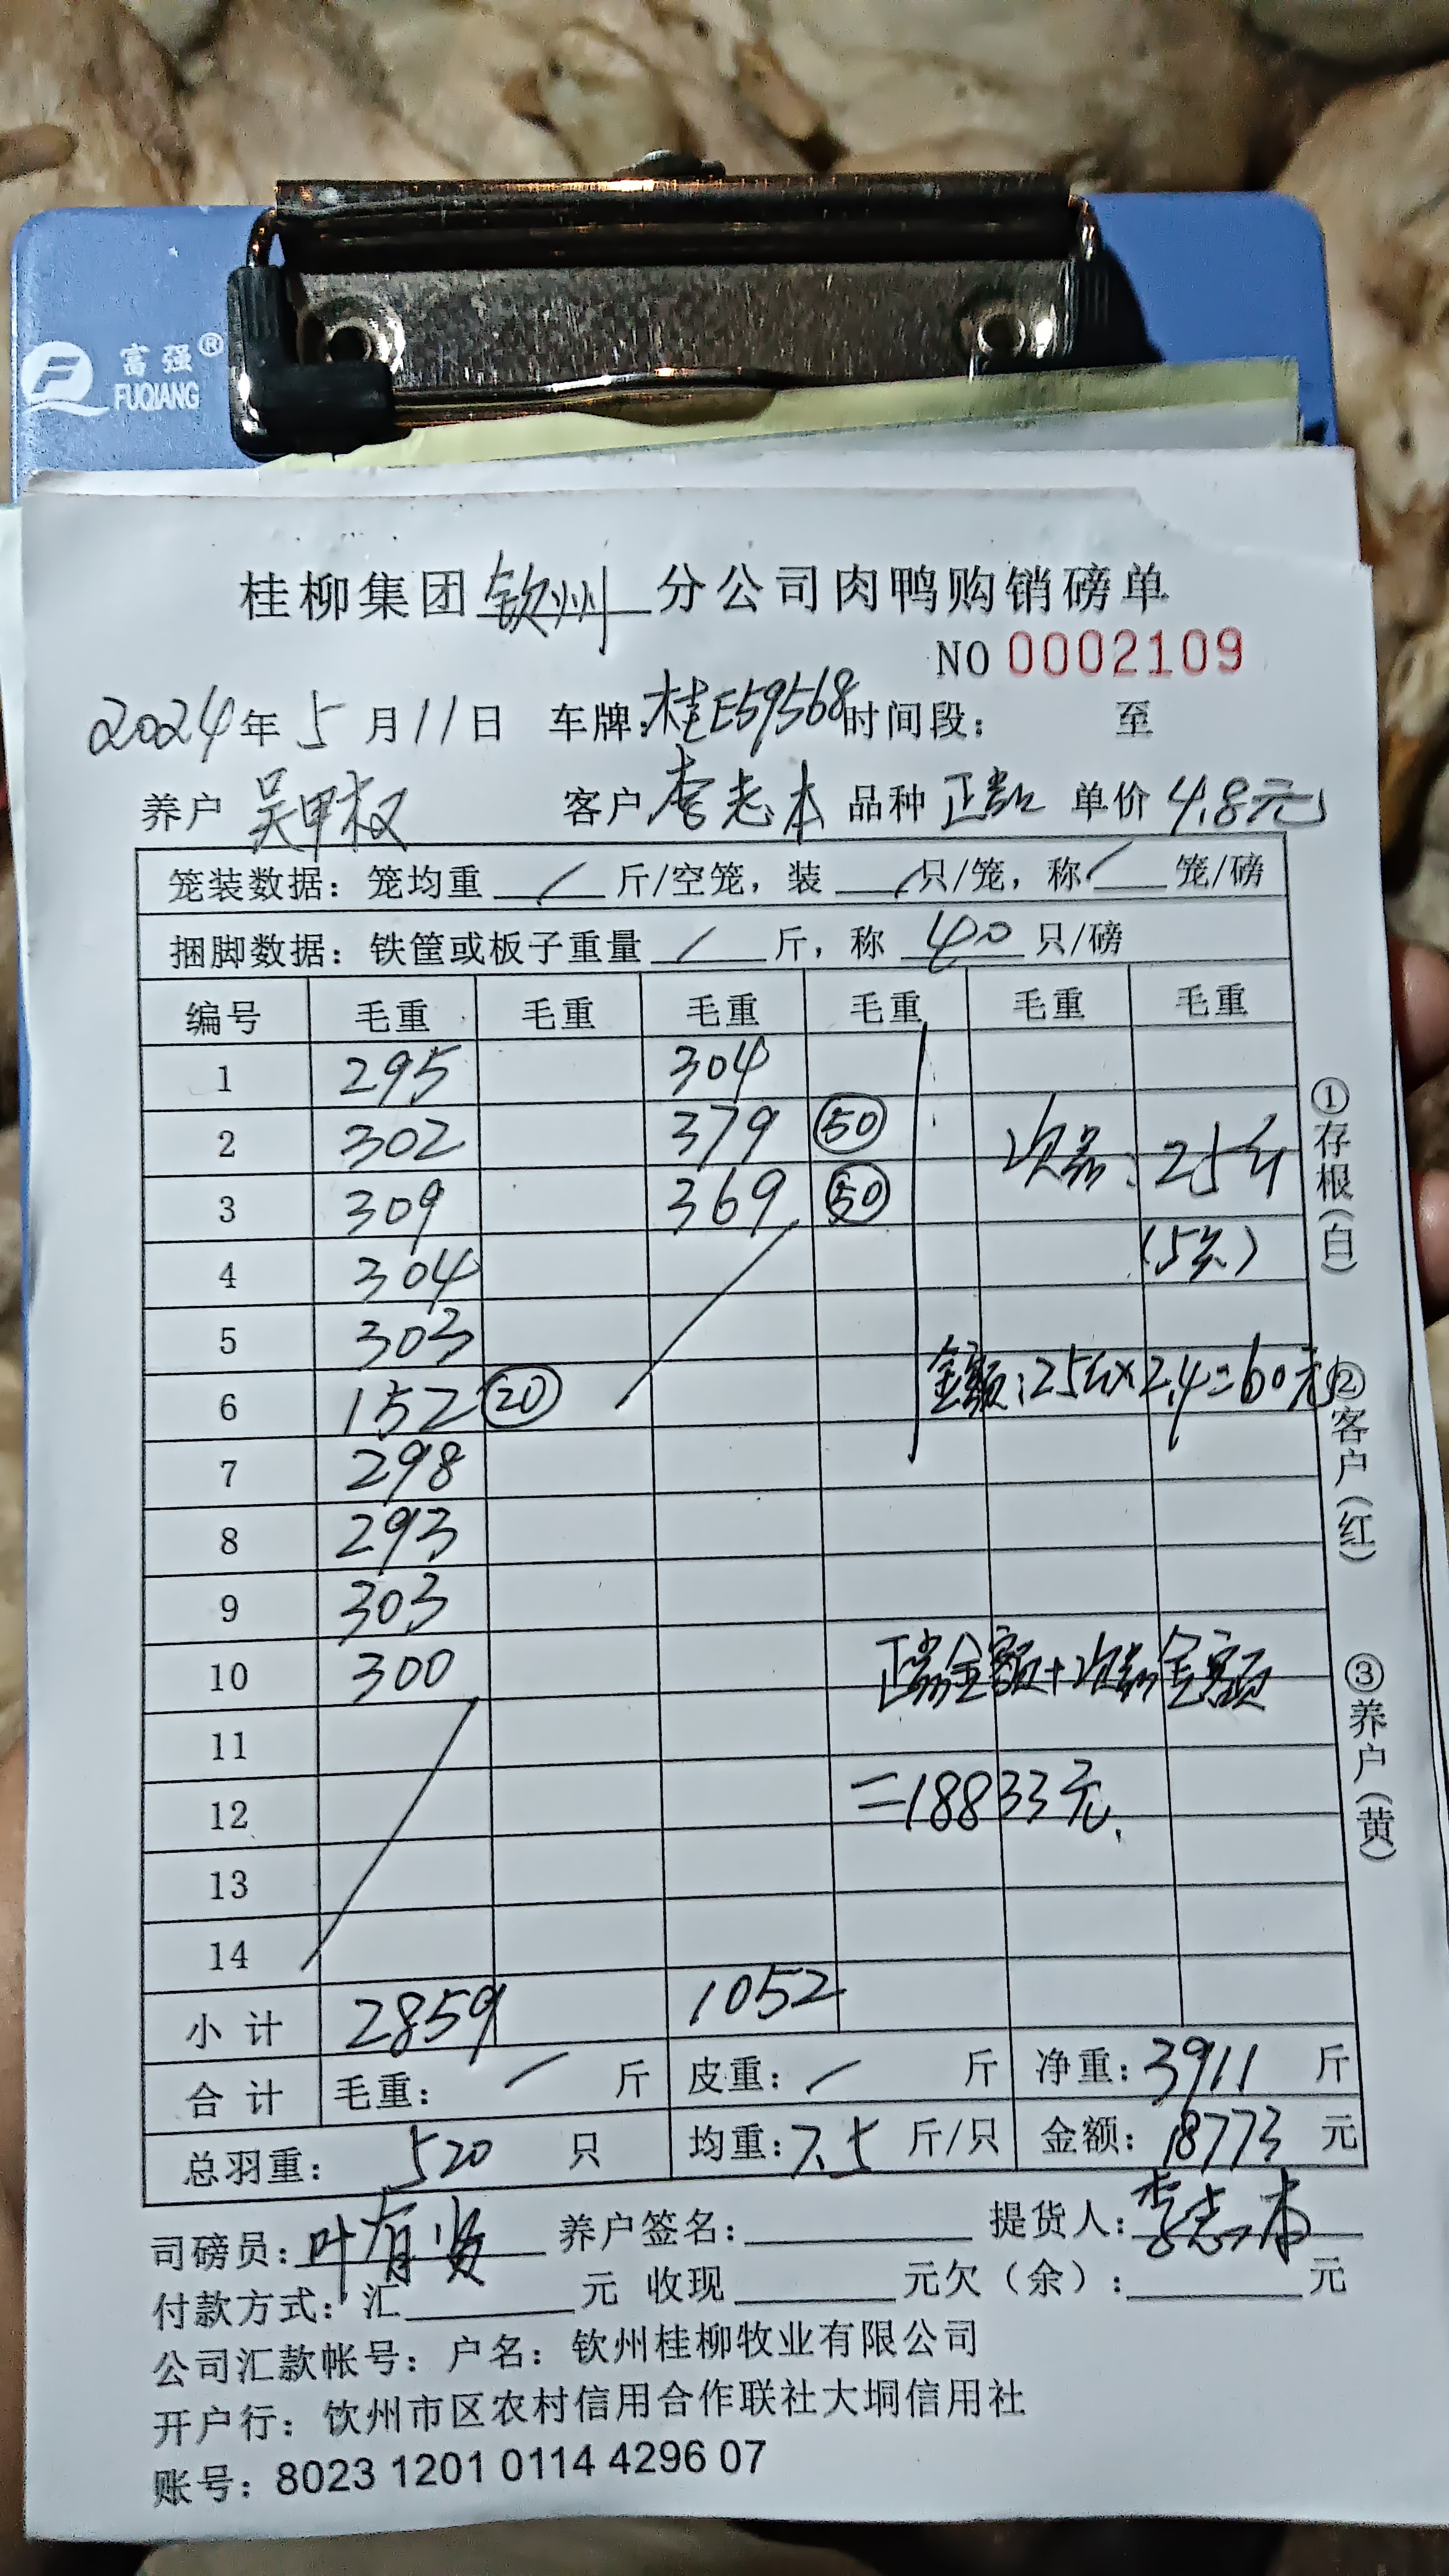 富强®
FUQIANG
桂柳集团 钦州 分公司肉鸭购销磅单
NO 0002109
2024年 5 月 11 日 车牌:桂E59568 时间段: 至
养户 吴甲权 客户 李志本 品种 正品 单价 4.8元
笼装数据: 笼均重 / 斤/空笼, 装 / 只/笼, 称 / 笼/磅
捆脚数据: 铁筐或板子重量 / 斤, 称 40 只/磅
编号 毛重 毛重 毛重 毛重 毛重 毛重
1 295 304
2 302 379 50 次品: 25斤
3 309 369 50
4 304 (5只)
5 303
6 152 20 金额:25斤×2.4=60元
7 298
8 293
9 303
10 300 正品金额+次品金额
11
12 =18833元.
13
14
小计 2859 1052
合计 毛重: / 斤 皮重: / 斤 净重: 3911 斤
总羽重: 520 只 均重: 7.5 斤/只 金额: 18773 元
司磅员: 叶有 养户签名: 提货人: 李志本
付款方式: 汇 元 收现 元欠(余): 元
公司汇款帐号: 户名: 钦州桂柳牧业有限公司
开户行: 钦州市区农村信用合作联社大垌信用社
账号: 8023 1201 0114 4296 07
①存根(白)
②客户(红)
③养户(黄)